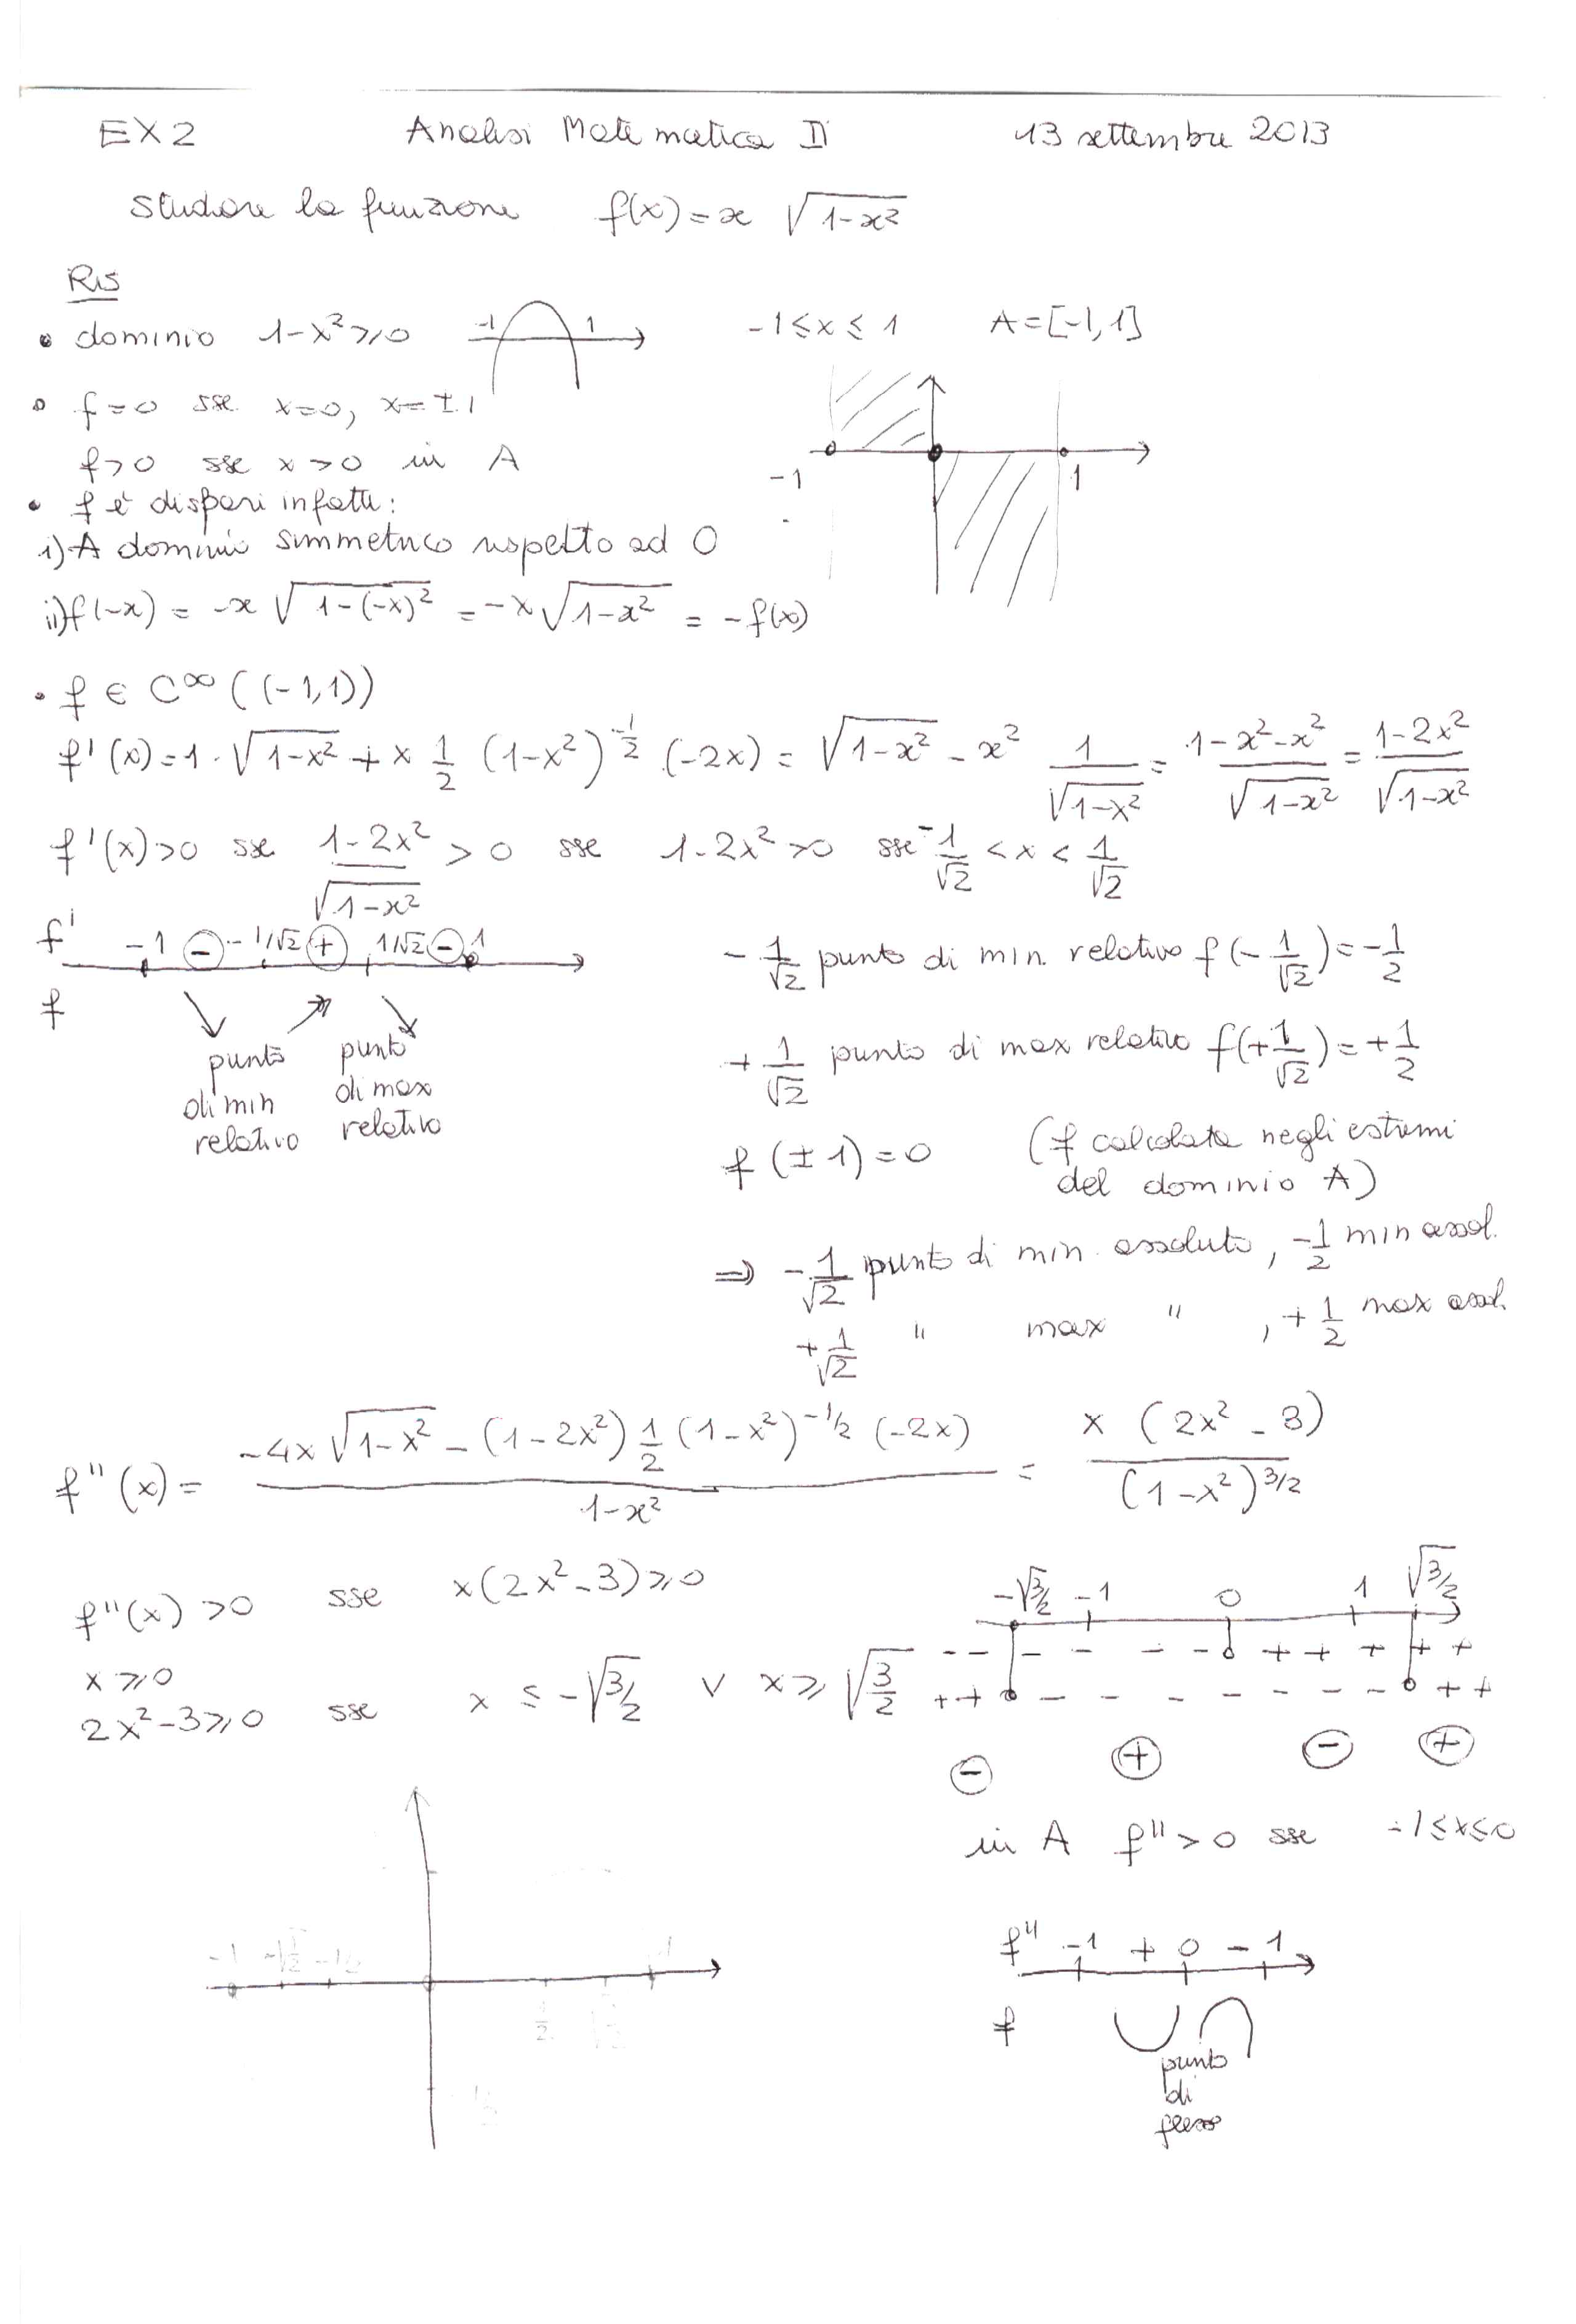 EX2 Analisi Matematica II 13 settembre 2013
Studiare la funzione f(x) = x √(1-x²)
Ris
• dominio 1-x² ⩾ 0 -1 1 -1 ≤ x ≤ 1 A = [-1,1]
• f=0 sse x=0, x=±1
f>0 sse x>0 in A
-1 1
• f è dispari infatti:
i) A dominio simmetrico rispetto ad 0
ii) f(-x) = -x √(1-(-x)²) = -x√(1-x²) = -f(x)
• f ∈ C^∞ ((-1,1))
f'(x) = 1·√(1-x²) + x 1/2 (1-x²)^(-1/2) (-2x) = √(1-x²) - x² 1/√(1-x²) = (1-x²-x²)/√(1-x²) = (1-2x²)/√(1-x²)
f'(x)>0 sse (1-2x²)/√(1-x²) > 0 sse 1-2x²>0 sse -1/√2 < x < 1/√2
f' -1 ⊖ -1/√2 ⊕ 1/√2 ⊖ 1
f
punto di min relativo
punto di max relativo
-1/√2 punto di min relativo f(-1/√2) = -1/2
+1/√2 punto di max relativo f(+1/√2) = +1/2
f(±1) = 0 (f calcolata negli estremi
del dominio A)
⇒ -1/√2 punto di min. assoluto, -1/2 min assol.
+1/√2 " max " , +1/2 max assol.
f''(x) = (-4x√(1-x²) - (1-2x²) 1/2 (1-x²)^(-1/2) (-2x))/(1-x²) = x(2x²-3)/(1-x²)^(3/2)
f''(x) > 0 sse x(2x²-3) ⩾ 0
x ⩾ 0
2x²-3⩾0 sse x ≤ -√(3/2) ∨ x ⩾ √(3/2)
-√(3/2) -1 0 1 √(3/2)
- - - - - - + + + + +
+ + - - - - - - + +
⊖ ⊕ ⊖ ⊕
in A f''>0 sse -1≤x≤0
f'' -1 + 0 - 1
f
punto
di
flesso
-1
1/2